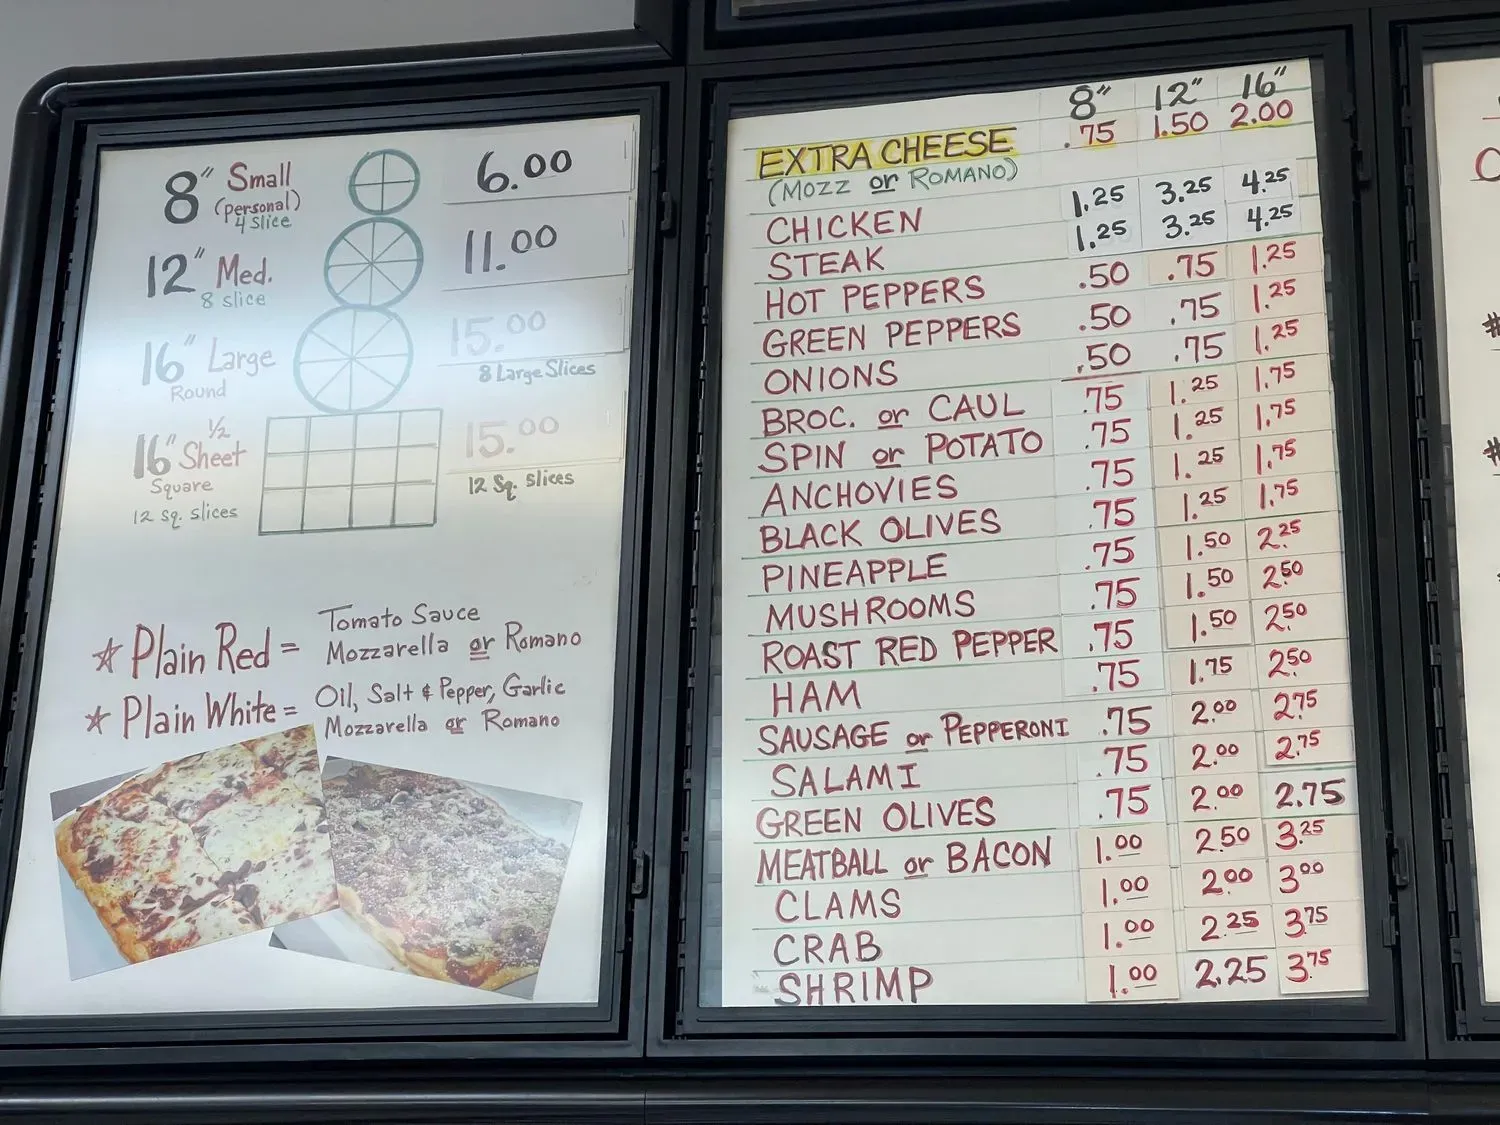 8" Small 6.00
(personal)
4 slice
12" Med. 11.00
8 slice
16" Large 15.00
Round 8 Large Slices
16" ½ Sheet 15.00
Square 12 Sq. slices
12 sq. slices
☆ Plain Red = Tomato Sauce
Mozzarella or Romano
☆ Plain White = Oil, Salt & Pepper, Garlic
Mozzarella or Romano
8" 12" 16"
EXTRA CHEESE .75 1.50 2.00
(MOZZ or ROMANO)
CHICKEN 1.25 3.25 4.25
STEAK 1.25 3.25 4.25
HOT PEPPERS .50 .75 1.25
GREEN PEPPERS .50 .75 1.25
ONIONS .50 .75 1.25
BROC. or CAUL .75 1.25 1.75
SPIN or POTATO .75 1.25 1.75
ANCHOVIES .75 1.25 1.75
BLACK OLIVES .75 1.25 1.75
PINEAPPLE .75 1.50 2.25
MUSHROOMS .75 1.50 2.50
ROAST RED PEPPER .75 1.50 2.50
HAM .75 1.75 2.50
SAUSAGE or PEPPERONI .75 2.00 2.75
SALAMI .75 2.00 2.75
GREEN OLIVES .75 2.00 2.75
MEATBALL or BACON 1.00 2.50 3.25
CLAMS 1.00 2.00 3.00
CRAB 1.00 2.25 3.75
SHRIMP 1.00 2.25 3.75